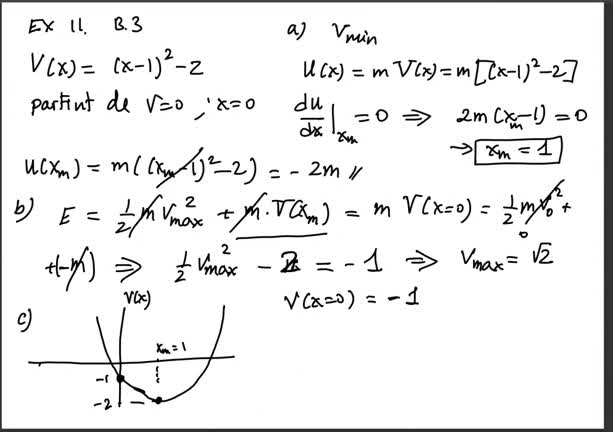 EX 11. B.3
V(x) = (x-1)² - 2
partint de v=0, x=0
a) Vmin
U(x) = m V(x) = m[(x-1)² - 2]
du/dx |xm = 0 ⇒ 2m(xm-1) = 0
→ xm = 1
U(xm) = m((xm-1)² - 2) = - 2m //
b) E = 1/2 m v²max + m·V(xm) = m V(x=0) = 1/2 m v₀² +
0
+(-m) ⇒ 1/2 v²max - 2 = - 1 ⇒ vmax = √2
V(x=0) = - 1
c) V(x)
xm = 1
-1
-2